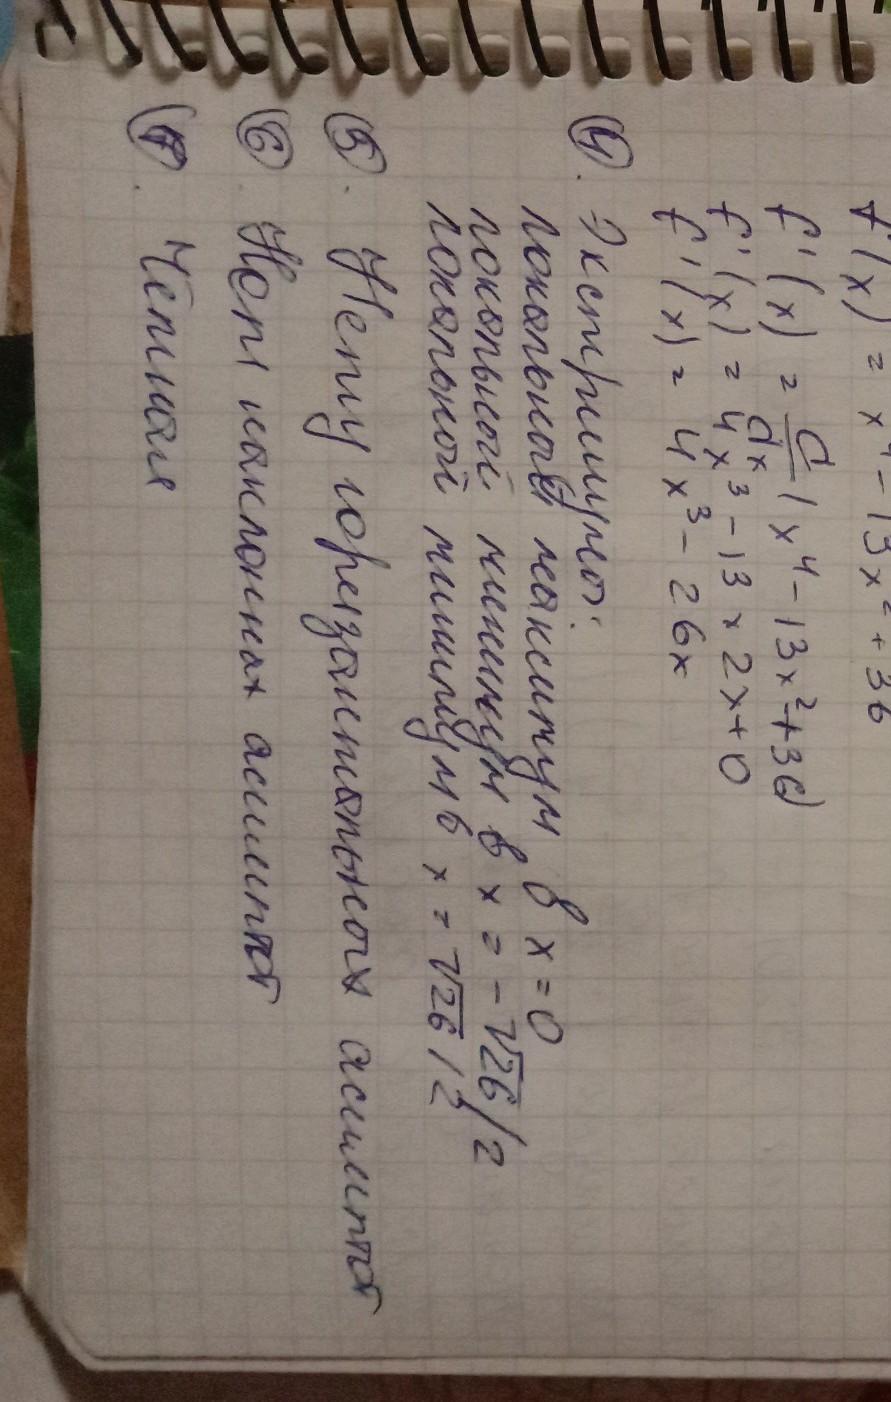 f'(x) = x⁴ - 13x² + 36
f'(x) = d/dx (x⁴ - 13x² + 36)
f'(x) = 4x³ - 13 × 2x + 0
f'(x) = 4x³ - 26x
④. Экстримумы:
локальный максимум в x = 0
локальный минимум в x = -√26/2
локальной минимум в x = √26/2
⑤. Нету горизонтальных асимптот
⑥. Нет наклонных асимптот
⑦. Чётная